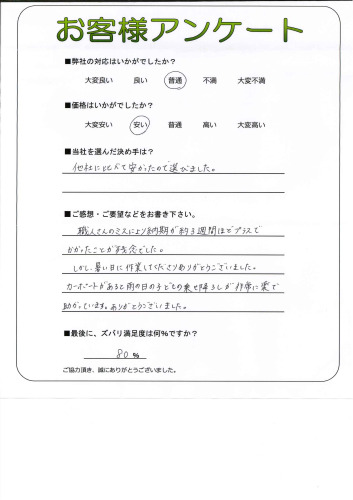 お客様アンケート
■弊社の対応はいかがでしたか？
大変良い 良い 普通 不満 大変不満
■価格はいかがでしたか？
大変安い 安い 普通 高い 大変高い
■当社を選んだ決め手は？
他社に比べて安かったので選びました。
■ご感想・ご要望などをお書き下さい。
職人さんのミスにより納期が約3週間ほどプラスで
かかったことが残念でした。
しかし、暑い日に作業してくださりありがとうございました。
カーポートがあると雨の日の子どもの乗せ降ろしが非常に楽で
助かっています。ありがとうございました。
■最後に、ズバリ満足度は何%ですか？
80 %
ご協力頂き、誠にありがとうございました。